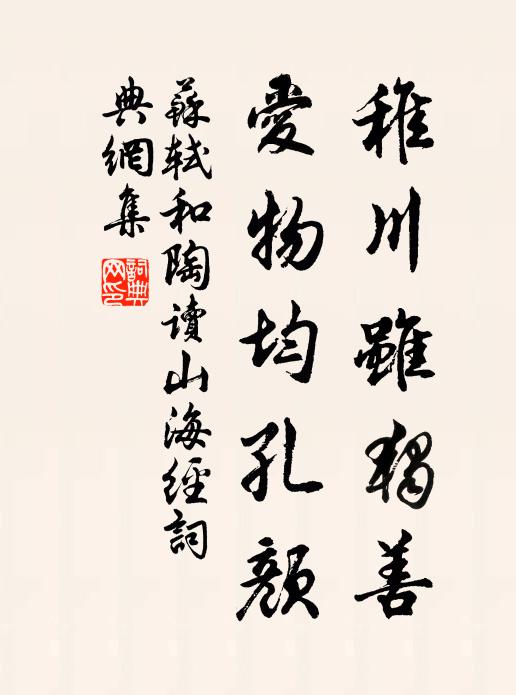 稚川雖獨善
愛物均孔顏
蘇軾和陶讀山海經詞
典網集
詞典網印